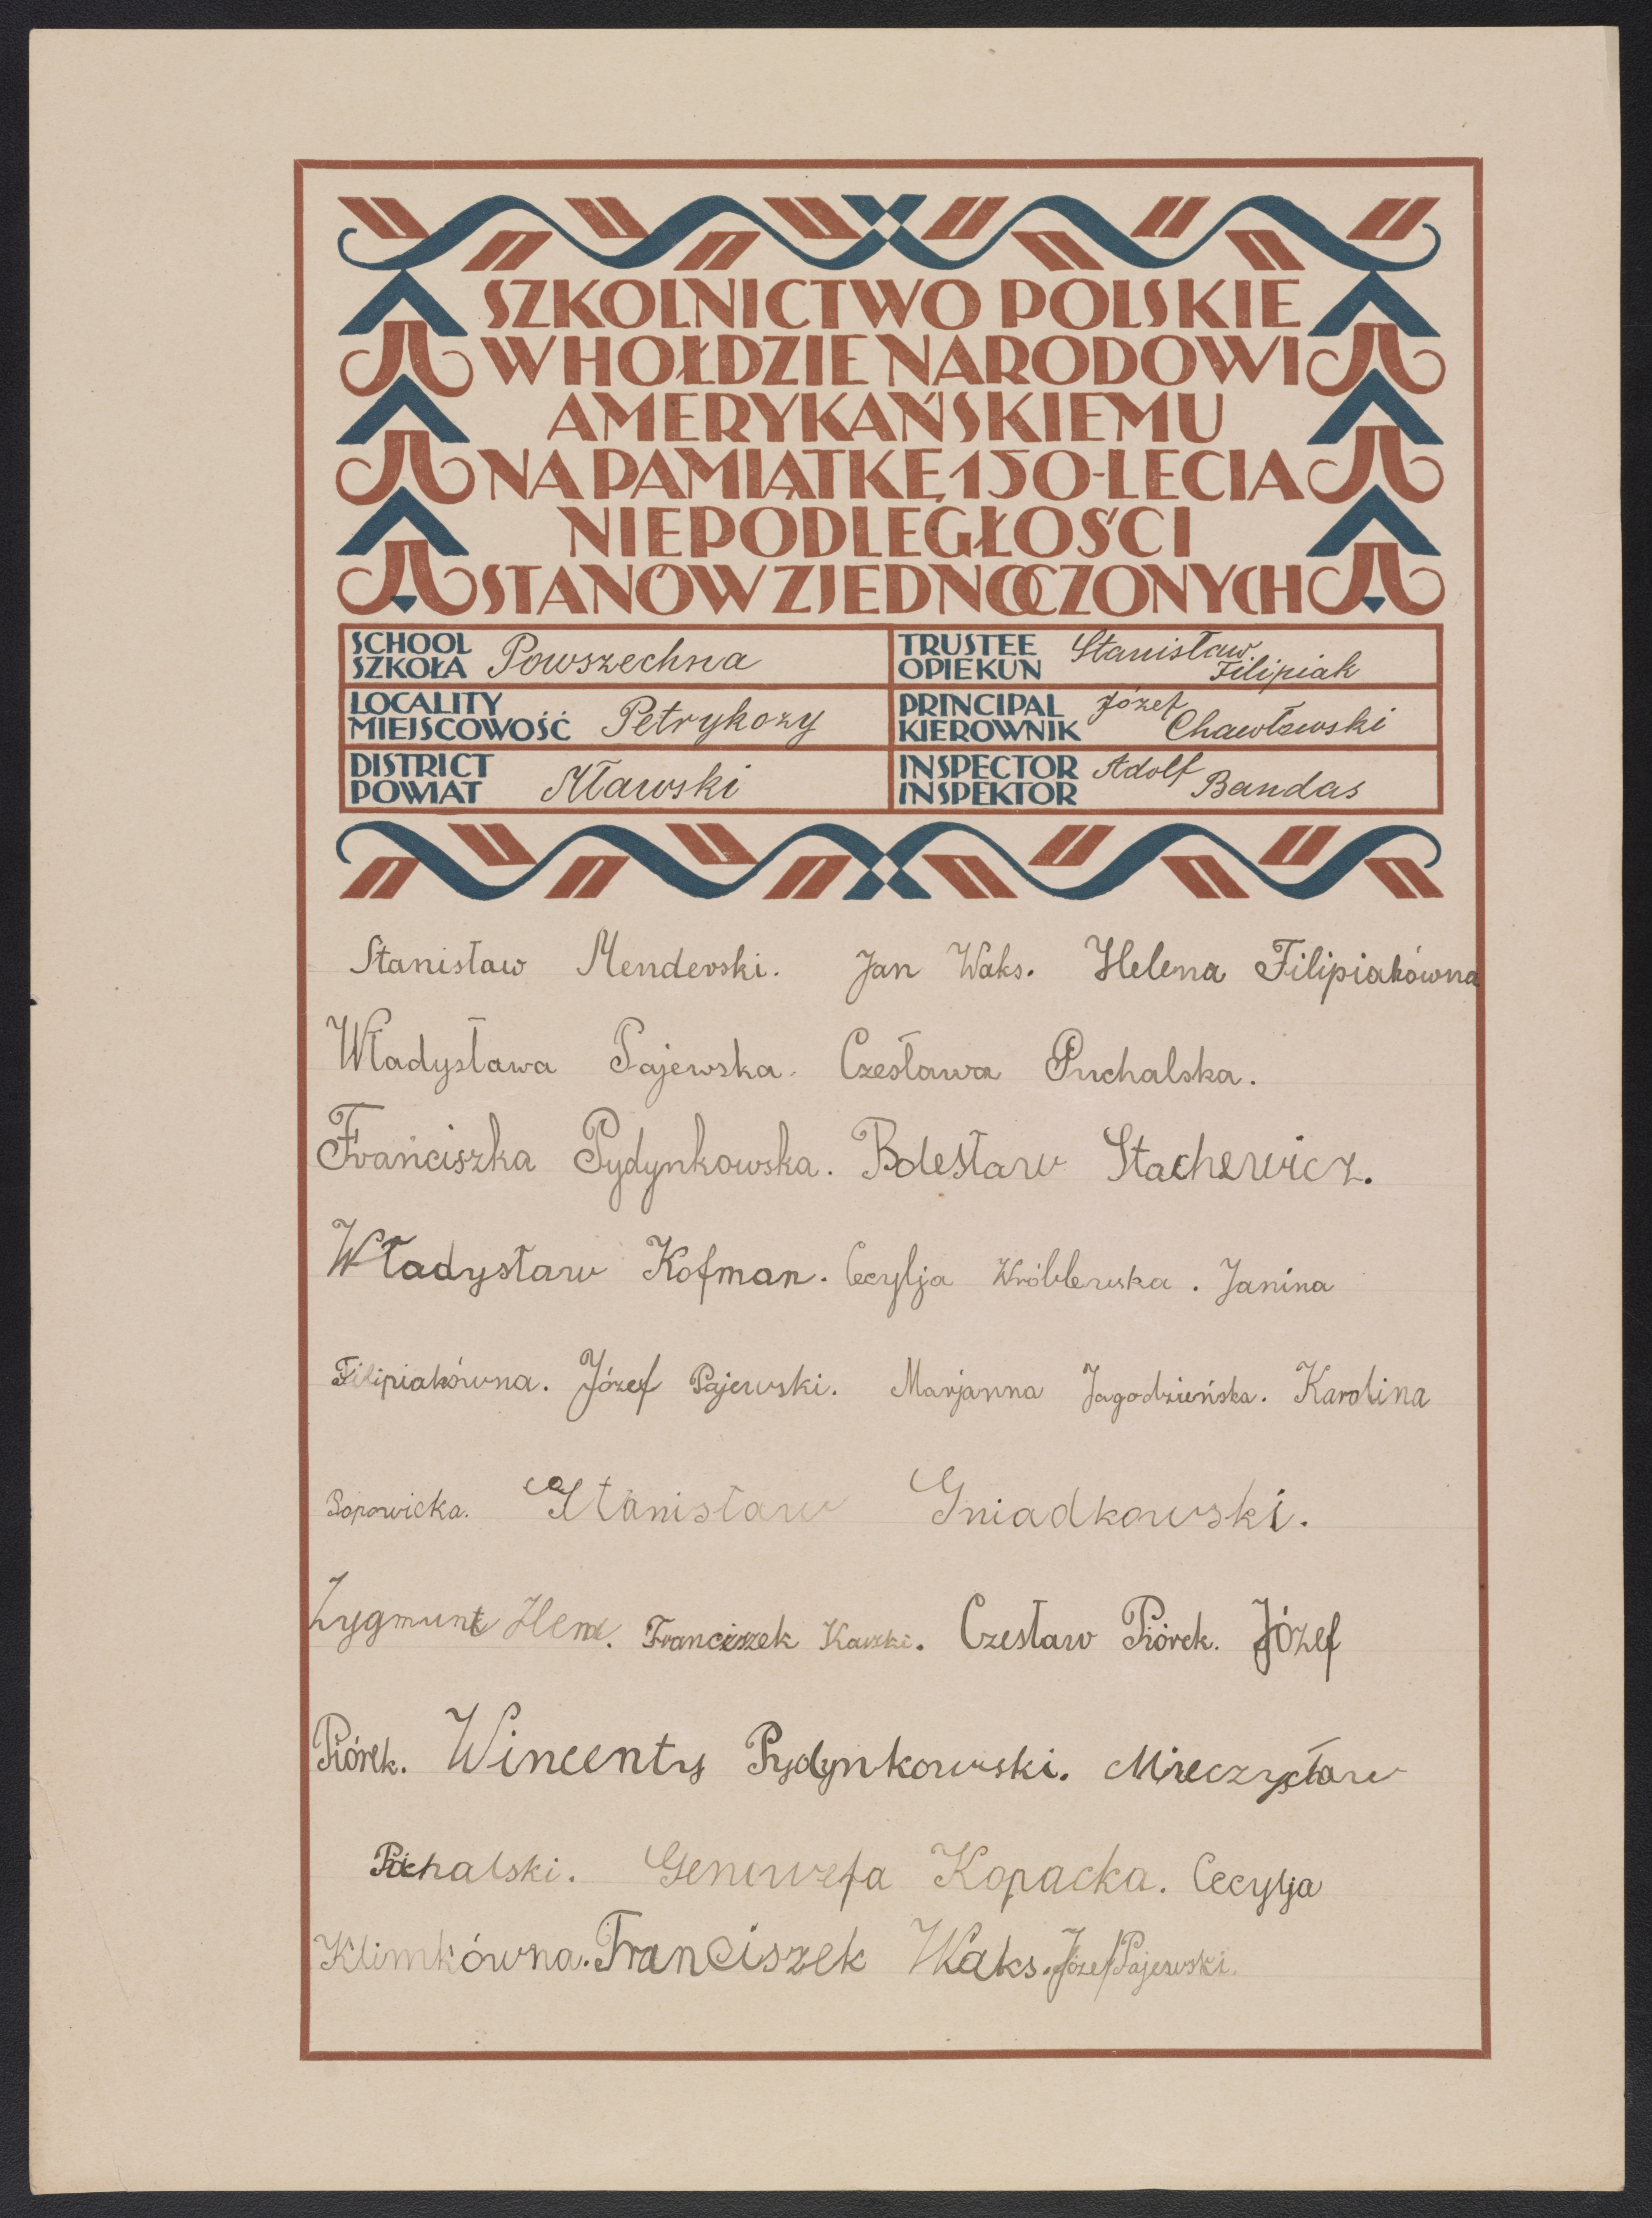 SZKOLNICTWO POLSKIE
W HOŁDZIE NARODOWI
AMERYKAŃSKIEMU
NA PAMIĄTKĘ 150-LECIA
NIEPODLEGŁOŚCI
STANÓW ZJEDNOCZONYCH
SCHOOL
SZKOŁA Powszechna
TRUSTEE
OPIEKUN Stanisław
Filipiak
LOCALITY
MIEJSCOWOŚĆ Petrykozy
PRINCIPAL
KIEROWNIK Józef
Chawłowski
DISTRICT
POWIAT Mławski
INSPECTOR
INSPEKTOR Adolf
Bandas
Stanisław Menderski. Jan Waks. Helena Filipiakówna
Władysława Pajewska. Czesława Puchalska.
Franciszka Pydynkowska. Bolesław Stachewicz.
Władysław Kofman. Cecylja Wróblewska. Janina
Filipiakówna. Józef Pajewski. Marjanna Jagodzieńska. Karolina
Stanisław Gniadkowski.
Zygmunt Franciszek Czesław Piórek. Józef
Piórek. Wincenty Pydynkowski. Mieczysław
Genowefa Kopacka. Cecylja
Klimkówna. Franciszek Waks. Józef Pajewski.